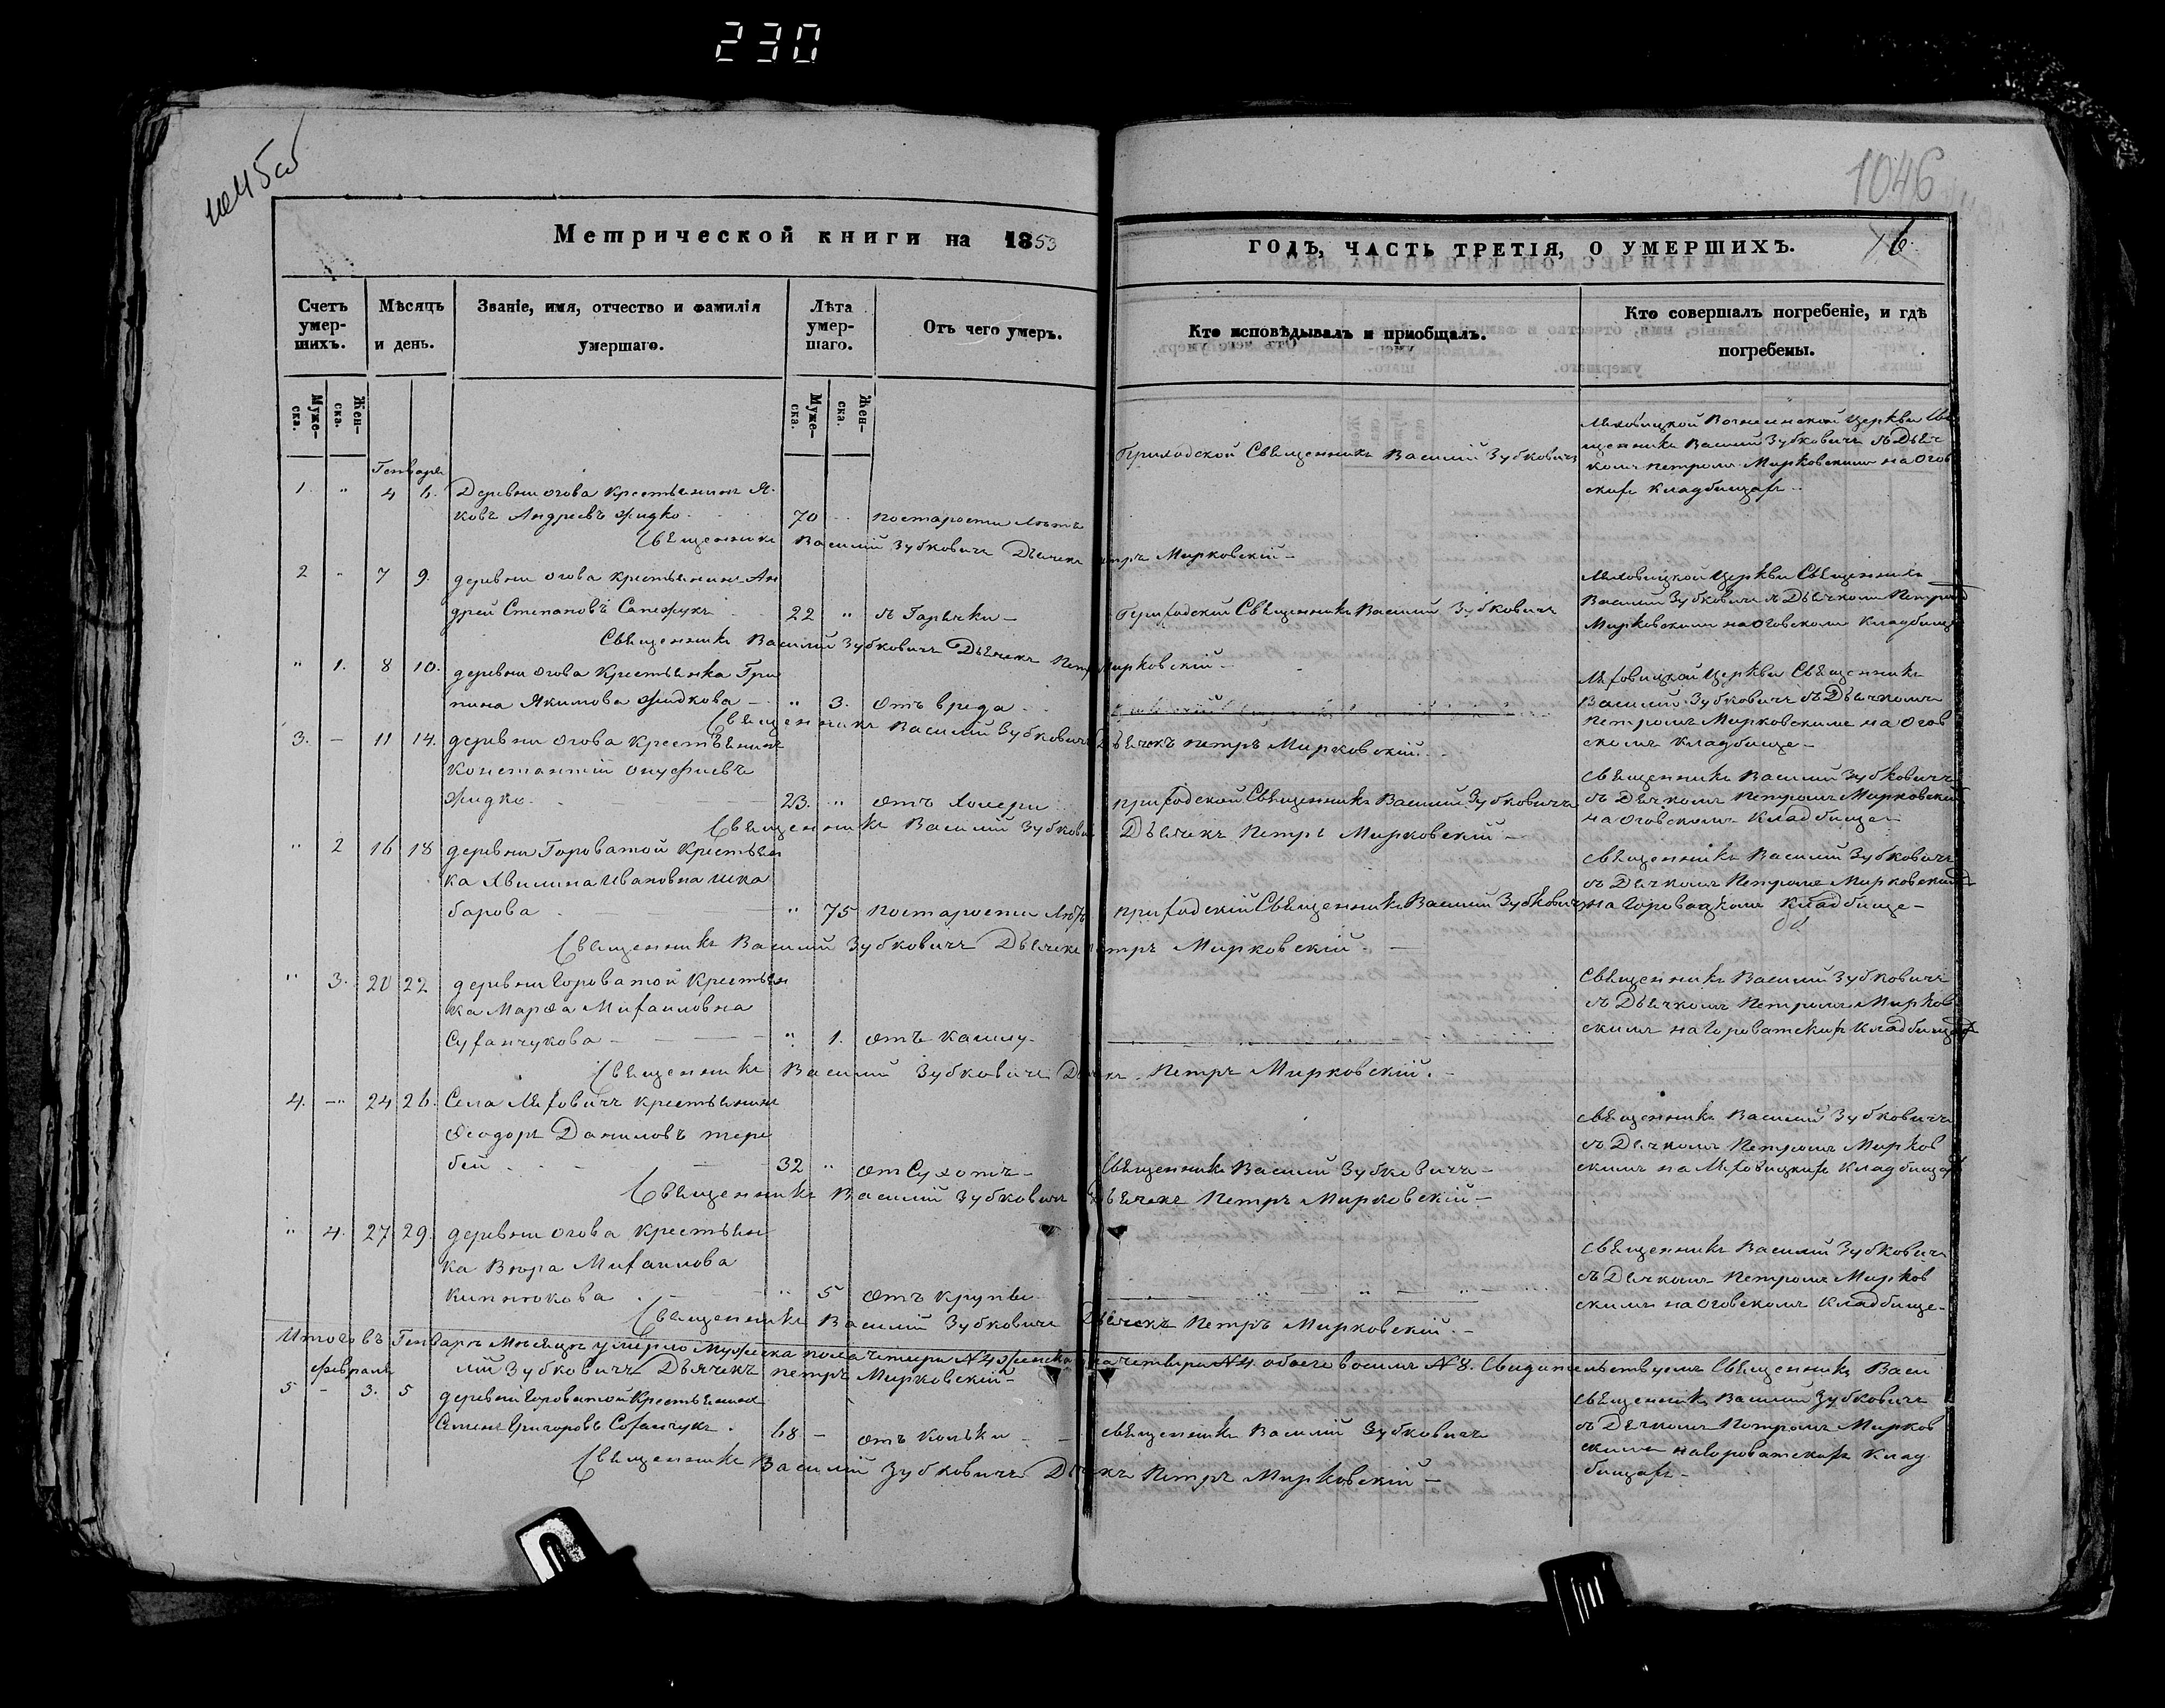 230
1046
Метрической книги на 1853
ГОДЪ, ЧАСТЬ ТРЕТІЯ, О УМЕРШИХЪ.
6.
Счетъ умер-шихъ.
Мѣсяцъ и день.
Званіе, имя, отчество и фамилія умершаго.
Лѣта умер-шаго.
Отъ чего умеръ.
Кто исповѣдывалъ и пріобщалъ.
Кто совершалъ погребеніе, и гдѣ погребены.
Муже-ска.
Жен-ска.
Муже-ска.
Жен-ска.
Генваря
Приходской Священникъ Василий Зубковичъ
церкви Свя
щенникъ Василий Зубковичъ съ Дьяч
комъ Петромъ Мирковскимъ на Огов
скихъ Кладбищахъ
1. " 4 6. Деревни Огова Крестьянинъ Я
ковъ Андреевъ Жидко 70 " по старости Лѣтъ
Священникъ Василий Зубковичъ Дьячекъ Петръ Мирковский
2 " 7 9. деревни Огова Крестьянинъ Ан
дрей Степановъ 22 " съ Горячки
Приходский Священникъ Василий Зубковичъ
Церкви Священникъ
Василий Зубковичъ съ Дьячкомъ Петромъ
Мирковскимъ на Оговскомъ Кладбище
Священникъ Василий Зубковичъ Дьячекъ Петръ Мирковский
" 1. 8 10. деревни Огова Крестьянка Гри
пина Якимова Жидкова " 3. Отъ вреда
Церкви Священникъ
Василий Зубковичъ съ Дьячкомъ
Петромъ Мирковскимъ на Огов
скомъ Кладбище
Священникъ Василий Зубковичъ Дьячекъ Петръ Мирковский
3. – 11 14. деревни Огова Крестьянинъ
Константий Онуфриевъ
Жидко 23. " отъ Холери
Приходской Священникъ Василий Зубковичъ
Священникъ Василий Зубковичъ
съ Дьячкомъ Петромъ Мирковским
на Оговскомъ Кладбище
Священникъ Василий Зубкович Дьячекъ Петръ Мирковский
" 2 16 18 деревни Гороватой Крестьян
ка Ивановна Шка
барова " 75 по старости Лѣтъ
приходский Священникъ Василий Зубковичъ
Священникъ Василий Зубковичъ
съ Дьячкомъ Петромъ Мирковским
на Гороватскомъ Кладбище
Священникъ Василий Зубковичъ Дьячекъ Петръ Мирковский
" 3. 20 22 деревни Гороватой Крестьян
ка Марѳа Михаиловна
Суханчукова " 1. отъ Кашлу
Священникъ Василий Зубковичъ
съ Дьячкомъ Петромъ Мирков
скимъ на Гороватскихъ Кладбищах
Священникъ Василий Зубковичъ Дьячекъ Петръ Мирковский.
4. – 24 26. Села Ляховичъ Крестьянинъ
Ѳеодоръ Даниловъ Тере
бей 32 " от Сухотъ
Священникъ Василий Зубковичъ
Священникъ Василий Зубковичъ
съ Дьячкомъ Петромъ Мирков
скимъ на Ляховицкихъ Кладбищах
Священникъ Василий Зубковичъ Дьячекъ Петръ Мирковский
" 4. 27 29. деревни Огова Крестьян
ка Михаилова
" 5 отъ Крупы
Священникъ Василий Зубковичъ
съ Дьячкомъ Петромъ Мирков
скимъ на Оговскомъ Кладбище
Священникъ Василий Зубковичъ Дьячекъ Петръ Мирковский
Итого въ Генварѣ Мѣсяцѣ умерло Мужеска пола четыри №4 Женска четыри №4. обоего восимъ №8. Свидѣтельствуемъ Священникъ Васи
лий Зубковичъ Дьячекъ Петръ Мирковский
Февраль
5 – 3. 5 деревни Гороватой Крестьянинъ
Семенъ Григоровъ Соханчукъ 68 – отъ Кольки
Священникъ Василий Зубковичъ
Священникъ Василий Зубковичъ
съ Дьячкомъ Петромъ Мирков
скимъ на Гороватскихъ Клад
бищахъ
Священникъ Василий Зубковичъ Дьячекъ Петръ Мирковский